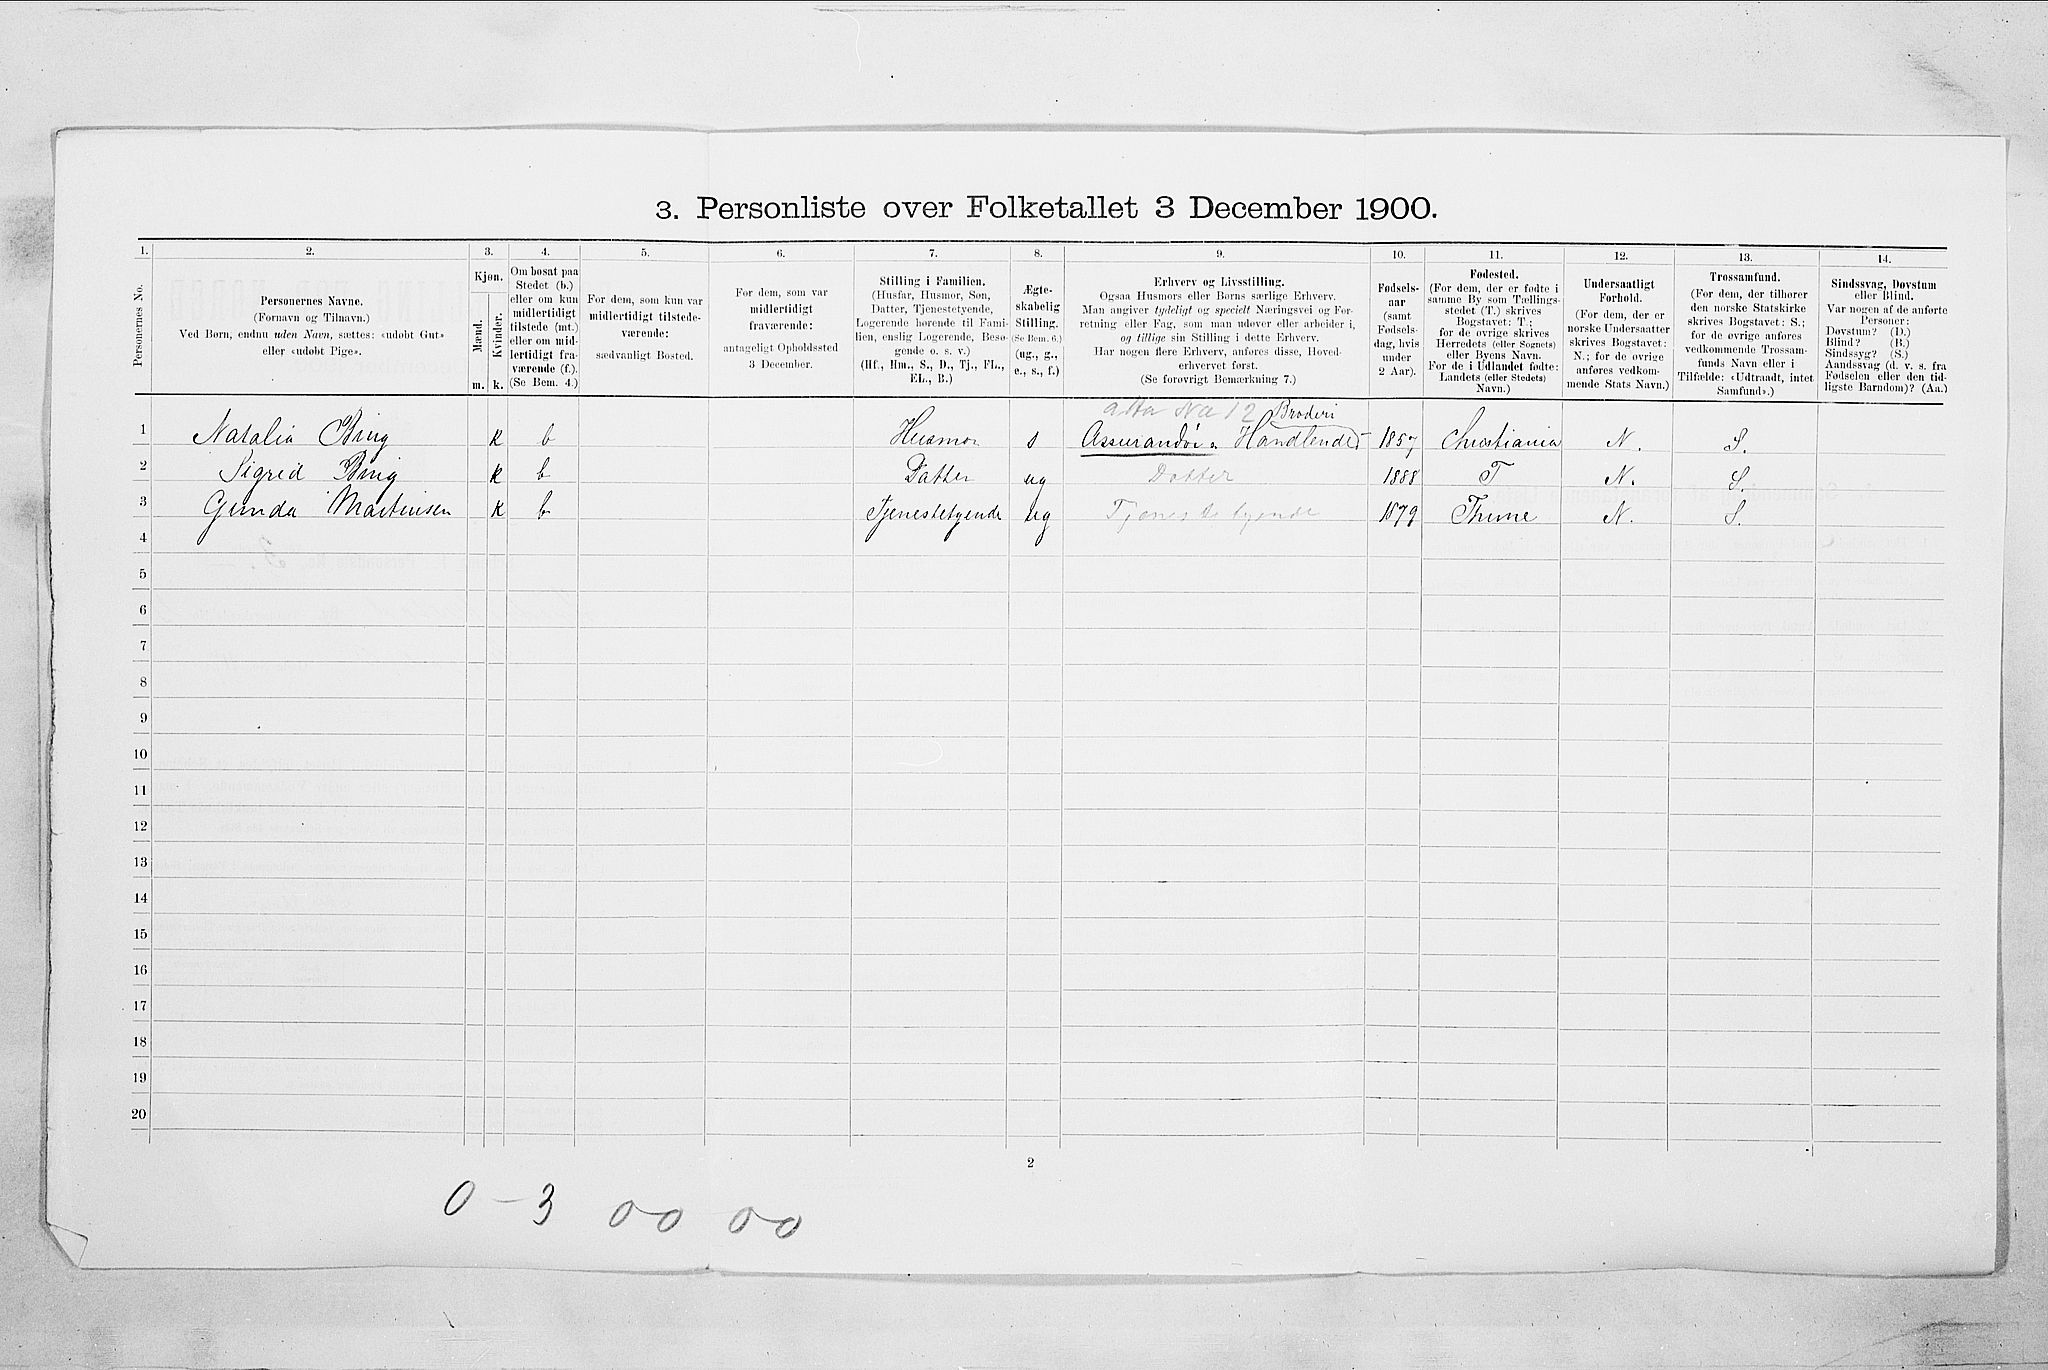 3. Personliste over Folketallet 3 December 1900.
1. 2. 3. 4. 5. 6. 7. 8. 9. 10. 11. 12. 13. 14.
Personernes No.
Personernes Navne.
(Fornavn og Tilnavn.)
Ved Børn, endnu uden Navn, sættes: «udøbt Gut»
eller «udøbt Pige».
Kjøn.
Mænd.
Kvinder.
m. k.
Om bosat paa
Stedet (b.)
eller om kun
midlertidigt
tilstede (mt.)
eller om mid-
lertidigt fra-
værende (f.).
(Se Bem. 4.)
For dem, som kun var
midlertidigt tilstede-
værende:
sædvanligt Bosted.
For dem, som var
midlertidigt
fraværende:
antageligt Opholdssted
3 December.
Stilling i Familien.
(Husfar, Husmor, Søn,
Datter, Tjenestetyende,
Logerende hørende til Fami-
lien, enslig Logerende, Besø-
gende o. s. v.)
(Hf., Hm., S., D., Tj., FL.,
EL., B.)
Ægte-
skabelig
Stilling.
(Se Bem. 6.)
(ug., g.,
e., s., f.)
Erhverv og Livsstilling.
Ogsaa Husmors eller Børns særlige Erhverv.
Man angiver tydeligt og specielt Næringsvei og For-
retning eller Fag, som man udøver eller arbeider i,
og tillige sin Stilling i dette Erhverv.
Har nogen flere Erhverv, anføres disse, Hoved-
erhvervet først.
(Se forøvrigt Bemærkning 7.)
Fødsels-
aar
(samt
Fødsels-
dag, hvis
under
2 Aar).
Fødested.
(For dem, der er fødte i
samme By som Tællings-
stedet (T.) skrives
Bogstavet: T.;
for de øvrige skrives
Herredets (eller Sognets)
eller Byens Navn.
For de i Udlandet fødte:
Landets (eller Stedets)
Navn.)
Undersaatligt
Forhold.
(For dem, der er
norske Undersaatter
skrives Bogstavet:
N.; for de øvrige
anføres vedkom-
mende Stats Navn.)
Trossamfund.
(For dem, der tilhører
den norske Statskirke
skrives Bogstavet: S.;
for de øvrige anføres
vedkommende Trossam-
funds Navn eller i
Tilfælde: «Udtraadt, intet
Samfund».)
Sindssvag, Døvstum
eller Blind.
Var nogen af de anførte
Personer:
Døvstum? (D.)
Blind? (B.)
Sindssyg? (S.)
Aandssvag (d. v. s. fra
Fødselen eller den tid-
ligste Barndom)? (Aa.)
12 Broderi
1 Natalia Bing k b Husmor s Handlende 1857 Christiania N. S.
2 Sigrid Bing k b Datter ug Datter 1888 T N. S.
3 Gunda Martinsen k b Tjenestetyende ug Tjenestetyende 1879 N. S.
4
5
6
7
8
9
10
11
12
13
14
15
16
17
18
19
20
2
0-3 00 00